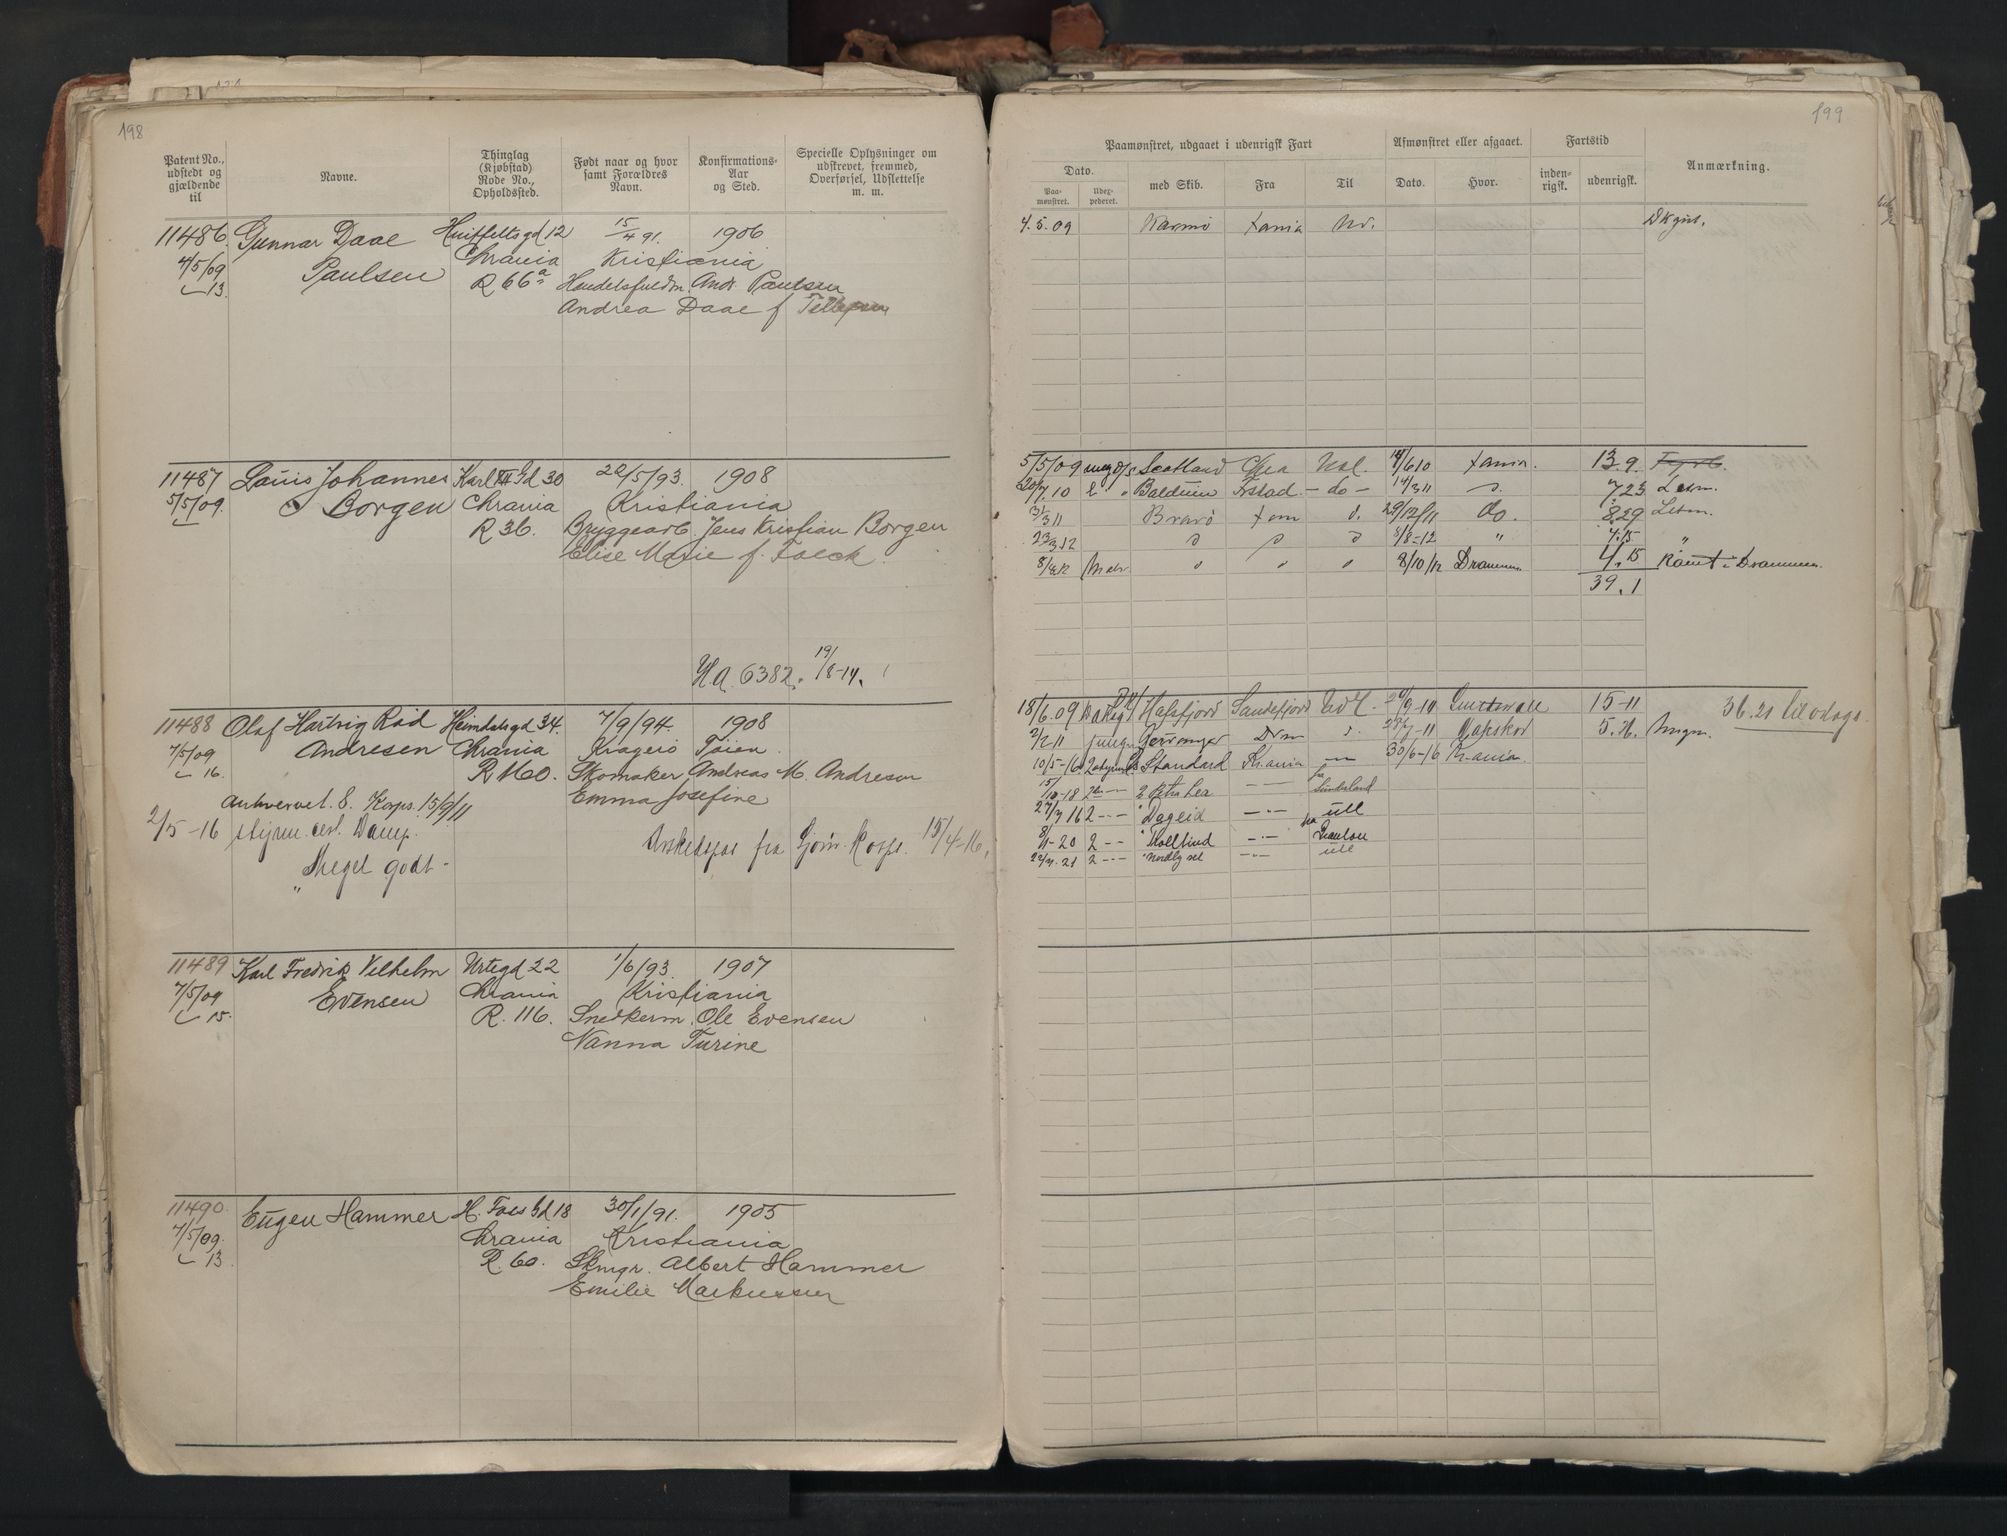 198
Patent No., udstedt og gjældende til
Navne.
Thinglag (Kjøbstad) Rode No., Opholdssted.
Født naar og hvor samt Forældres Navn.
Konfirmations-Aar og Sted.
Specielle Oplysninger om udskrevet, fremmed, Overførsel, Udslettelse m. m.
11486. Gunnar Daae Huitfeltsgd 12 15/4 91. 1906
4/5/09 Paulsen Chrania Kristiania
13. R 66a Handelsfuldm. Andr. Paulsen
Andrea Daae f
11487 Louis Johannes Karl XII Gd 30 22/5/93. 1908
5/5/09. Borgen Chrania Kristiania
R 36. Bryggearb. Jens Kristian Borgen
Elise Marie f. Falck.
H.A. 6382. 19/8-14.
11488 Olaf Hartvig Rød Heimdalsgd 34. 7/9/94. 1908
7/5/09 Andresen Chrania Kragerø Tøien.
16. R 160. Skomaker Andreas M. Andresen
Emma Josefine
Anhvervet. S. Korps. 15/9/11
2/5-16 styrm. cert. Damp.
Meget godt -
Afskedspas fra Sjøm. Korps. 15/4-16.
11489 Karl Fredrik Vilhelm Urtegd 22 1/6/93. 1907
7/5/09 Evensen Chrania Kristiania
15. R. 116. Snedkerm. Ole Evensen
Nanna Turine
11490. Eugen Hammer H. Foss Gd 18 30/1/91. 1905
7/5/09. Chrania Kristiania
13. R. 60. Skmgr. Albert Hammer
Emilie Markussen
199
Paamønstret, udgaaet i udenrigsk Fart
Afmønstret eller afgaaet.
Fartstid
Anmærkning.
Dato.
Paamønstret.
Udexpederet.
med Skib.
Fra
Til
Dato.
Hvor.
indenrigsk.
udenrigsk.
4.5.09 Karmø Xania Ud. Dkgut.
5/5/09 Scotland Chra Udl. 14/6 10 Xania. 13.9.
20/7.10 Balduin Frstad. - do - 14/3 11 7 23 Letm.
31/3 11 Bravo Xam 29/12/11 do. 8.29 Letm.
23/3.12 " 8/8-12 " 4.15 "
8/8 12 8/10/12 Drammen 4.15 Rømt i Drammen.
39.1
18/6.09 Halsfjord Sandefjord Udl. 15-11 36.21 til o dags
2/2 11 Drm 5. Mapskod
10/5-16 Standard Kr.ania 30/6-16 Kr.ania.
15/10-18 2 Petra Lea fra Sunderland
27/3 16 2 - - " Dageid utl
8/1-20 2 - - " Kollfind fra
22/4.21 2 - - " Nordlyset utl